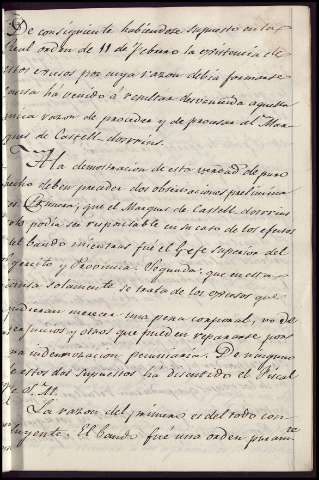 De consiguiente habiendose supuesto en la R.
cital orden de 11 de Febrero la existencia de
estos excesos por cuya razon debia formarse
causa ha venido á resultar desvanecida aquella
unica razon de proceder y de procesar al Mar
ques de Castell-dosrrius.
A la demostracion de esta verdad de puro
hecho deben preceder dos observaciones prelimina
res. Primera, que el Marques de Castell-dosrrius
solo podia ser responsable en su caso de los efectos
del bando mientras fué el Gefe Superior del
Egercito y Provincia. Segunda: que en esta
causa solamente se trata de los excesos que
pudieran merecer una pena corporal, no de
perjuicios y otros que pueden repararse por
una indemnizacion pecuniaria. De ninguno
de estos dos supuestos ha disentido el Fiscal
de S. M.
La razon del primero es del todo con
cluyente. El bando fué una orden puram.te